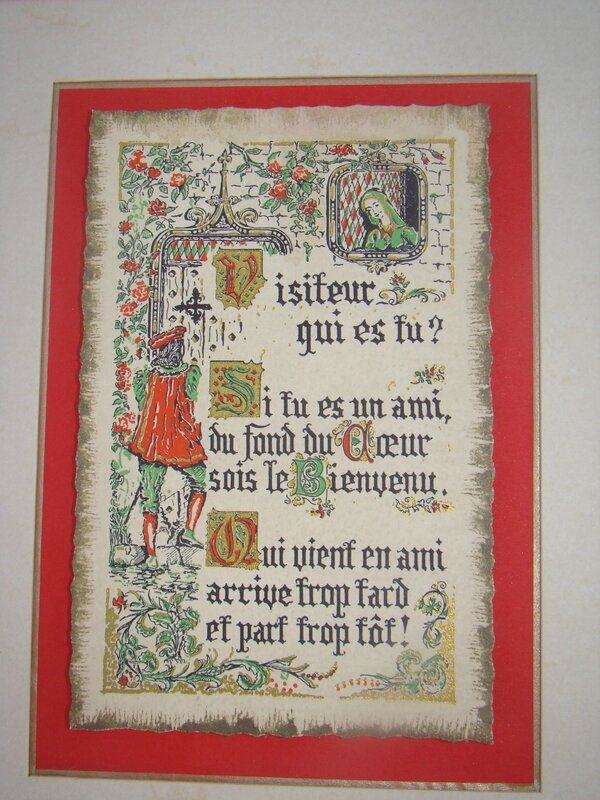 Visiteur
qui es tu?
Si tu es un ami,
du fond du Cœur
sois le Bienvenu.
Qui vient en ami
arrive trop tard
et part trop tôt!